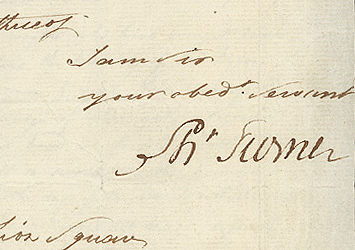 thereof
I am Sir
your obedt. Servant
Shr Turner
Lion Square